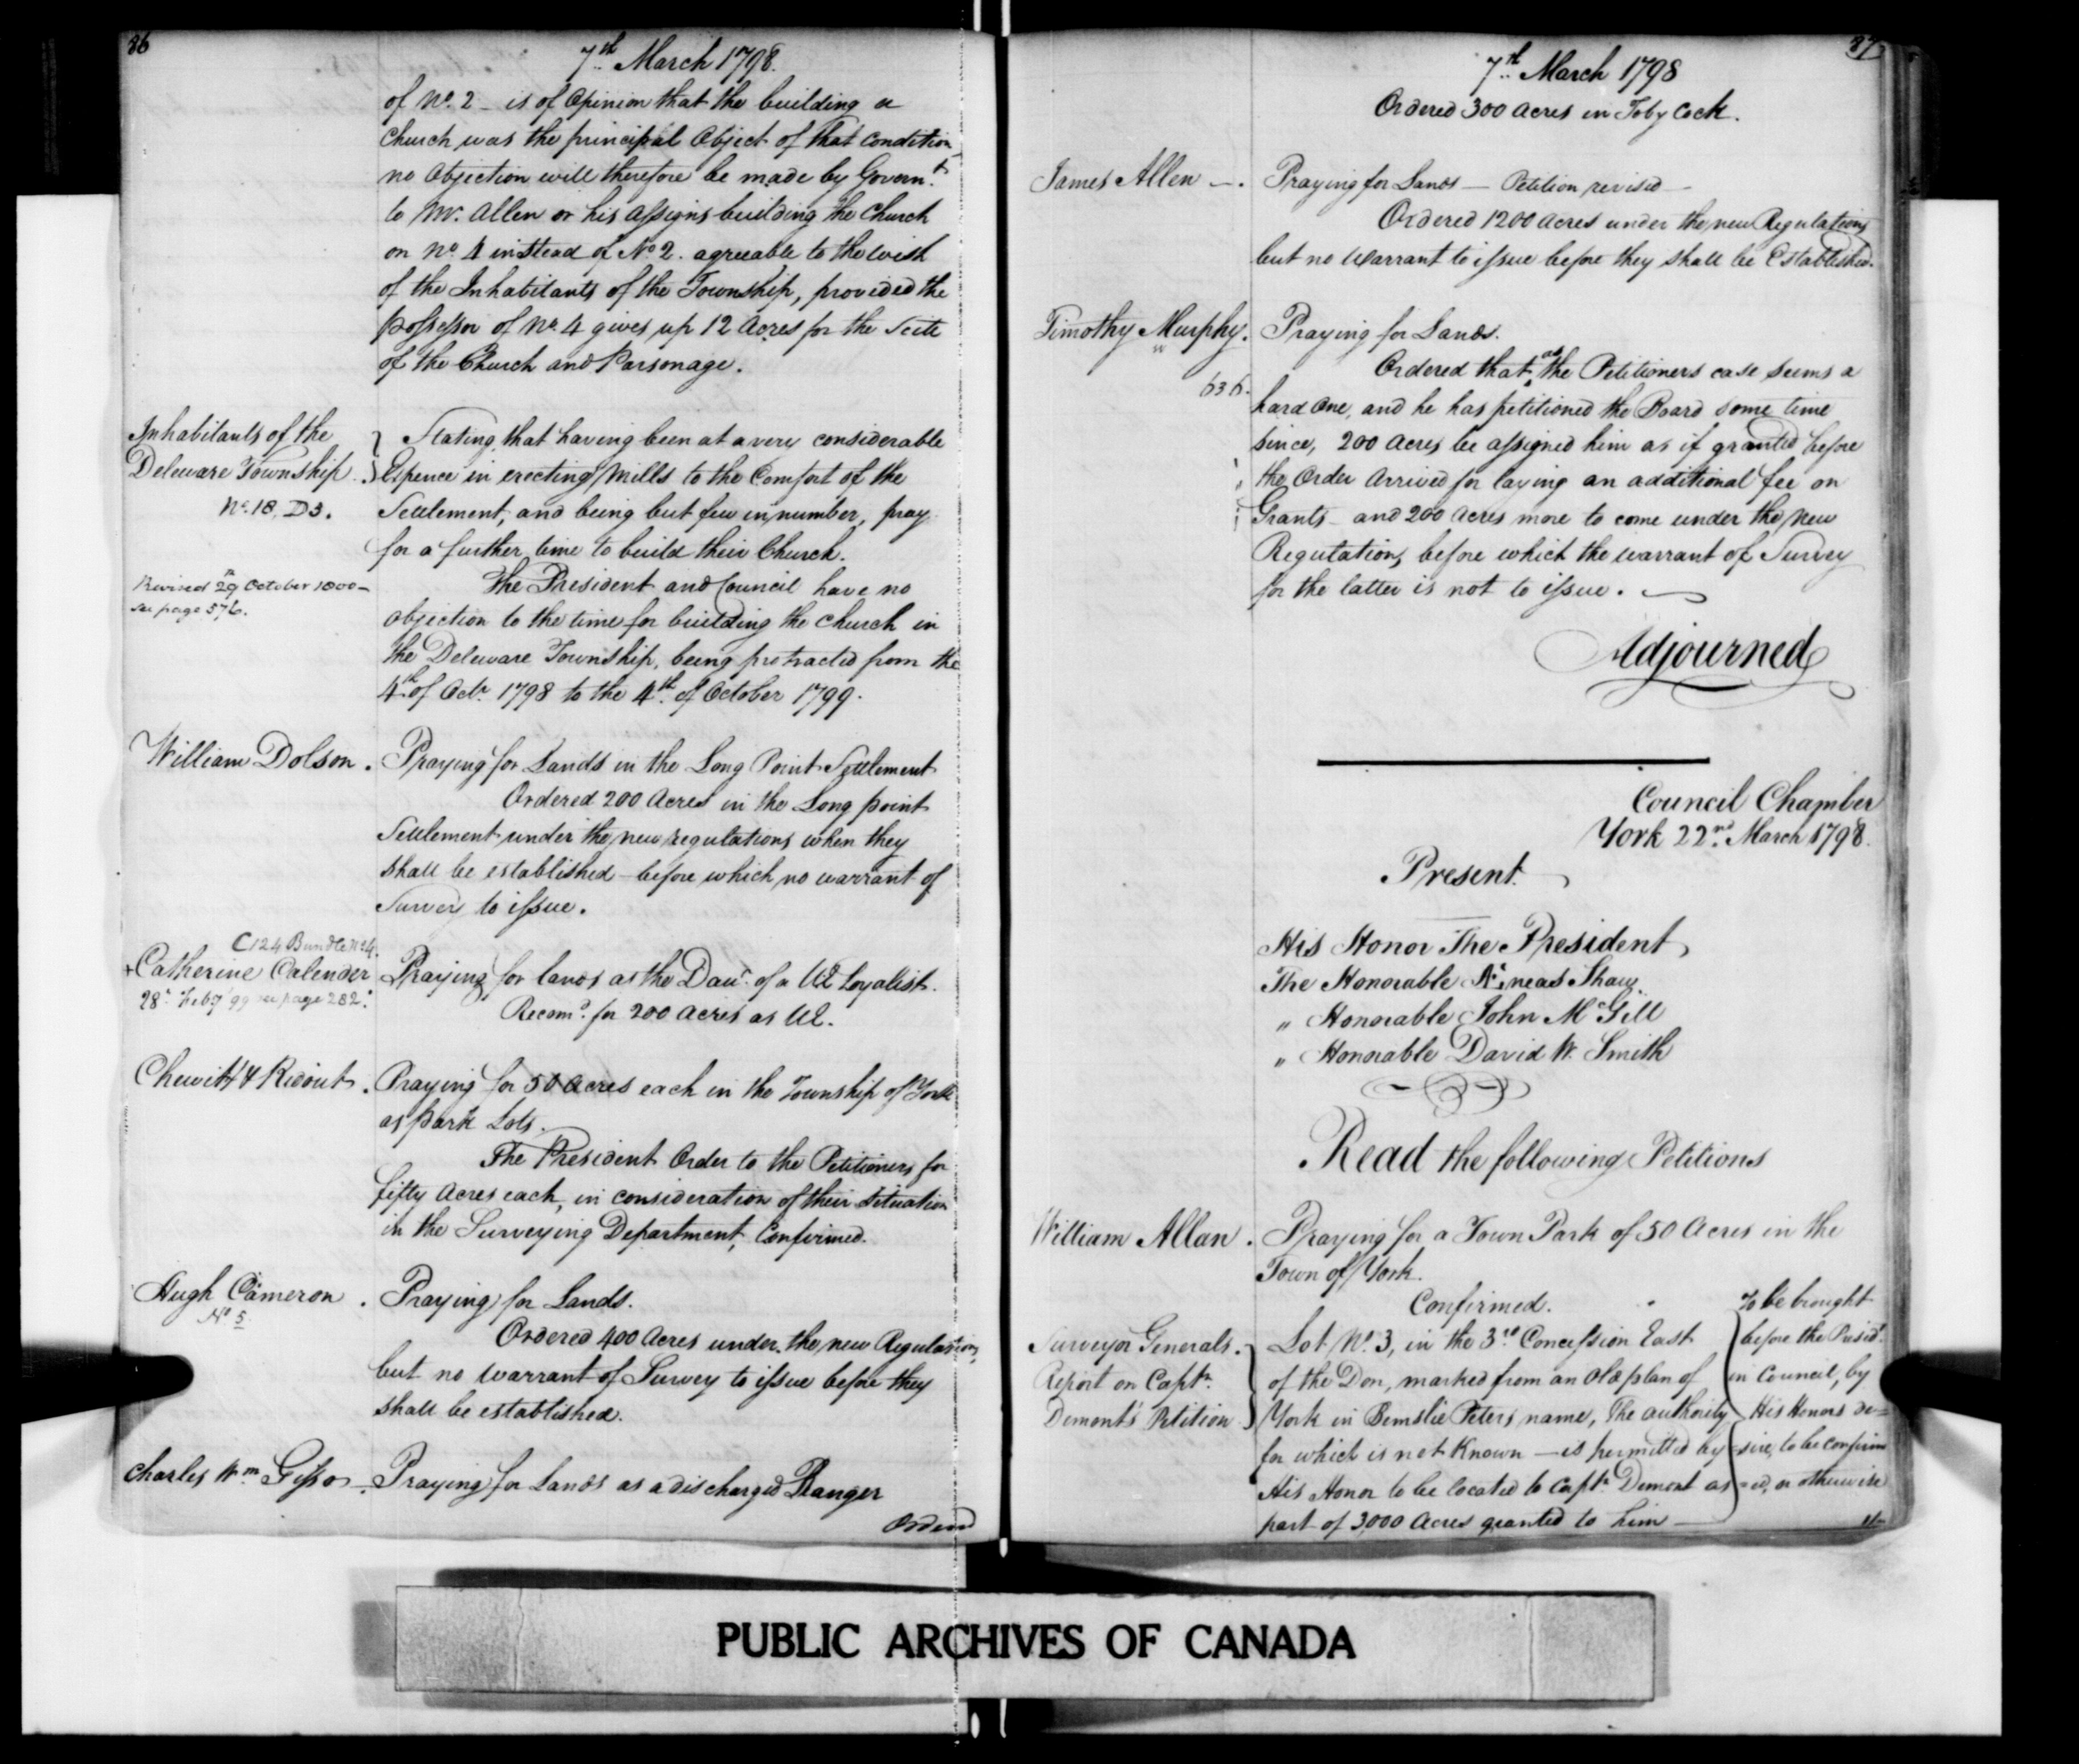 86
7th March 1798.
of No. 2 - is of Opinion that the building a
Church was the principal Object of that condition
no Objection will therefore be made by Governt.
to Mr. Allen or his Assigns building the Church
on No. 4 instead of No. 2. agreeable to the wish
of the Inhabitants of the Township, provided the
possessor of No. 4 gives up 12 Acres for the Scite
of the Church and Parsonage.
Inhabitants of the
Deleware Township.
No. 18. D3.
Stating that having been at a very considerable
Expence in erecting Mills to the Comfort of the
Settlement, and being but few in number, pray
for a further time to build their Church.
Revised 29 October 1800 -
see page 576.
The President and Council have no
objection to the time for building the Church in
the Deleware Township, being protracted from the
4th of Octr. 1798 to the 4th. of October 1799.
William Dolson.
Praying for Lands in the Long Point Settlement
Ordered 200 Acres in the Long point
Settlement under the new regulations when they
shall be established - before which no warrant of
Survey to issue.
C 124 Bundle No. 4.
+ Catherine Calender
28th Feby 99 see page 282.
Praying for lands as the Daur. of a UE Loyalist.
Recomd. for 200 Acres as UE.
Chewitt & Ridout.
Praying for 50 Acres each in the Township of York
as park Lots.
The President Order to the Petitioners for
fifty Acres each, in consideration of their situation
in the Surveying Department, Confirmed.
Hugh Cameron.
No 5.
Praying for Lands.
Ordered 400 Acres under the new Regulations,
but no warrant of Survey to issue before they
shall be established.
Charles Wm. Gisso -.
Praying for Lands as a discharged Ranger
Ordered
87
7th March 1798
Ordered 300 Acres in Toby Cock.
James Allen -.
Praying for Lands - Petition revised -
Ordered 1200 Acres under the new Regulations
but no Warrant to issue before they shall be Established.
Timothy Murphy.
636.
Praying for Lands.
Ordered that as the Petitioners case seems a
hard One, and he has petitioned the Board some time
since, 200 Acres be assigned him as if granted before
the Order Arrived for laying an additional fee on
Grants - and 200 Acres more to come under the new
Regulation, before which the warrant of Survey
for the latter is not to issue.
Adjourned
Council Chamber
York 22nd. March 1798.
Present.
His Honor The President
The Honorable Æneas Shaw.
„ Honorable John McGill
„ Honorable David W. Smith
Read the following Petitions
William Allan.
Praying for a Town Park of 50 Acres in the
Town of York.
Confirmed.
Surveyor Generals.
Report on Captn.
Demont's Petition
Lot No. 3, in the 3rd Concession East
of the Don, marked from an Old plan of
York in Bemslie Peters name, The authority
for which is not Known - is permitted by
His Honor to be located to Captn. Demont as
part of 3,000 Acres granted to him -
To be brought
before the Presidt.
in Council, by
His Honors de=
=sire, to be confirm
=ed, or otherwise
PUBLIC ARCHIVES OF CANADA